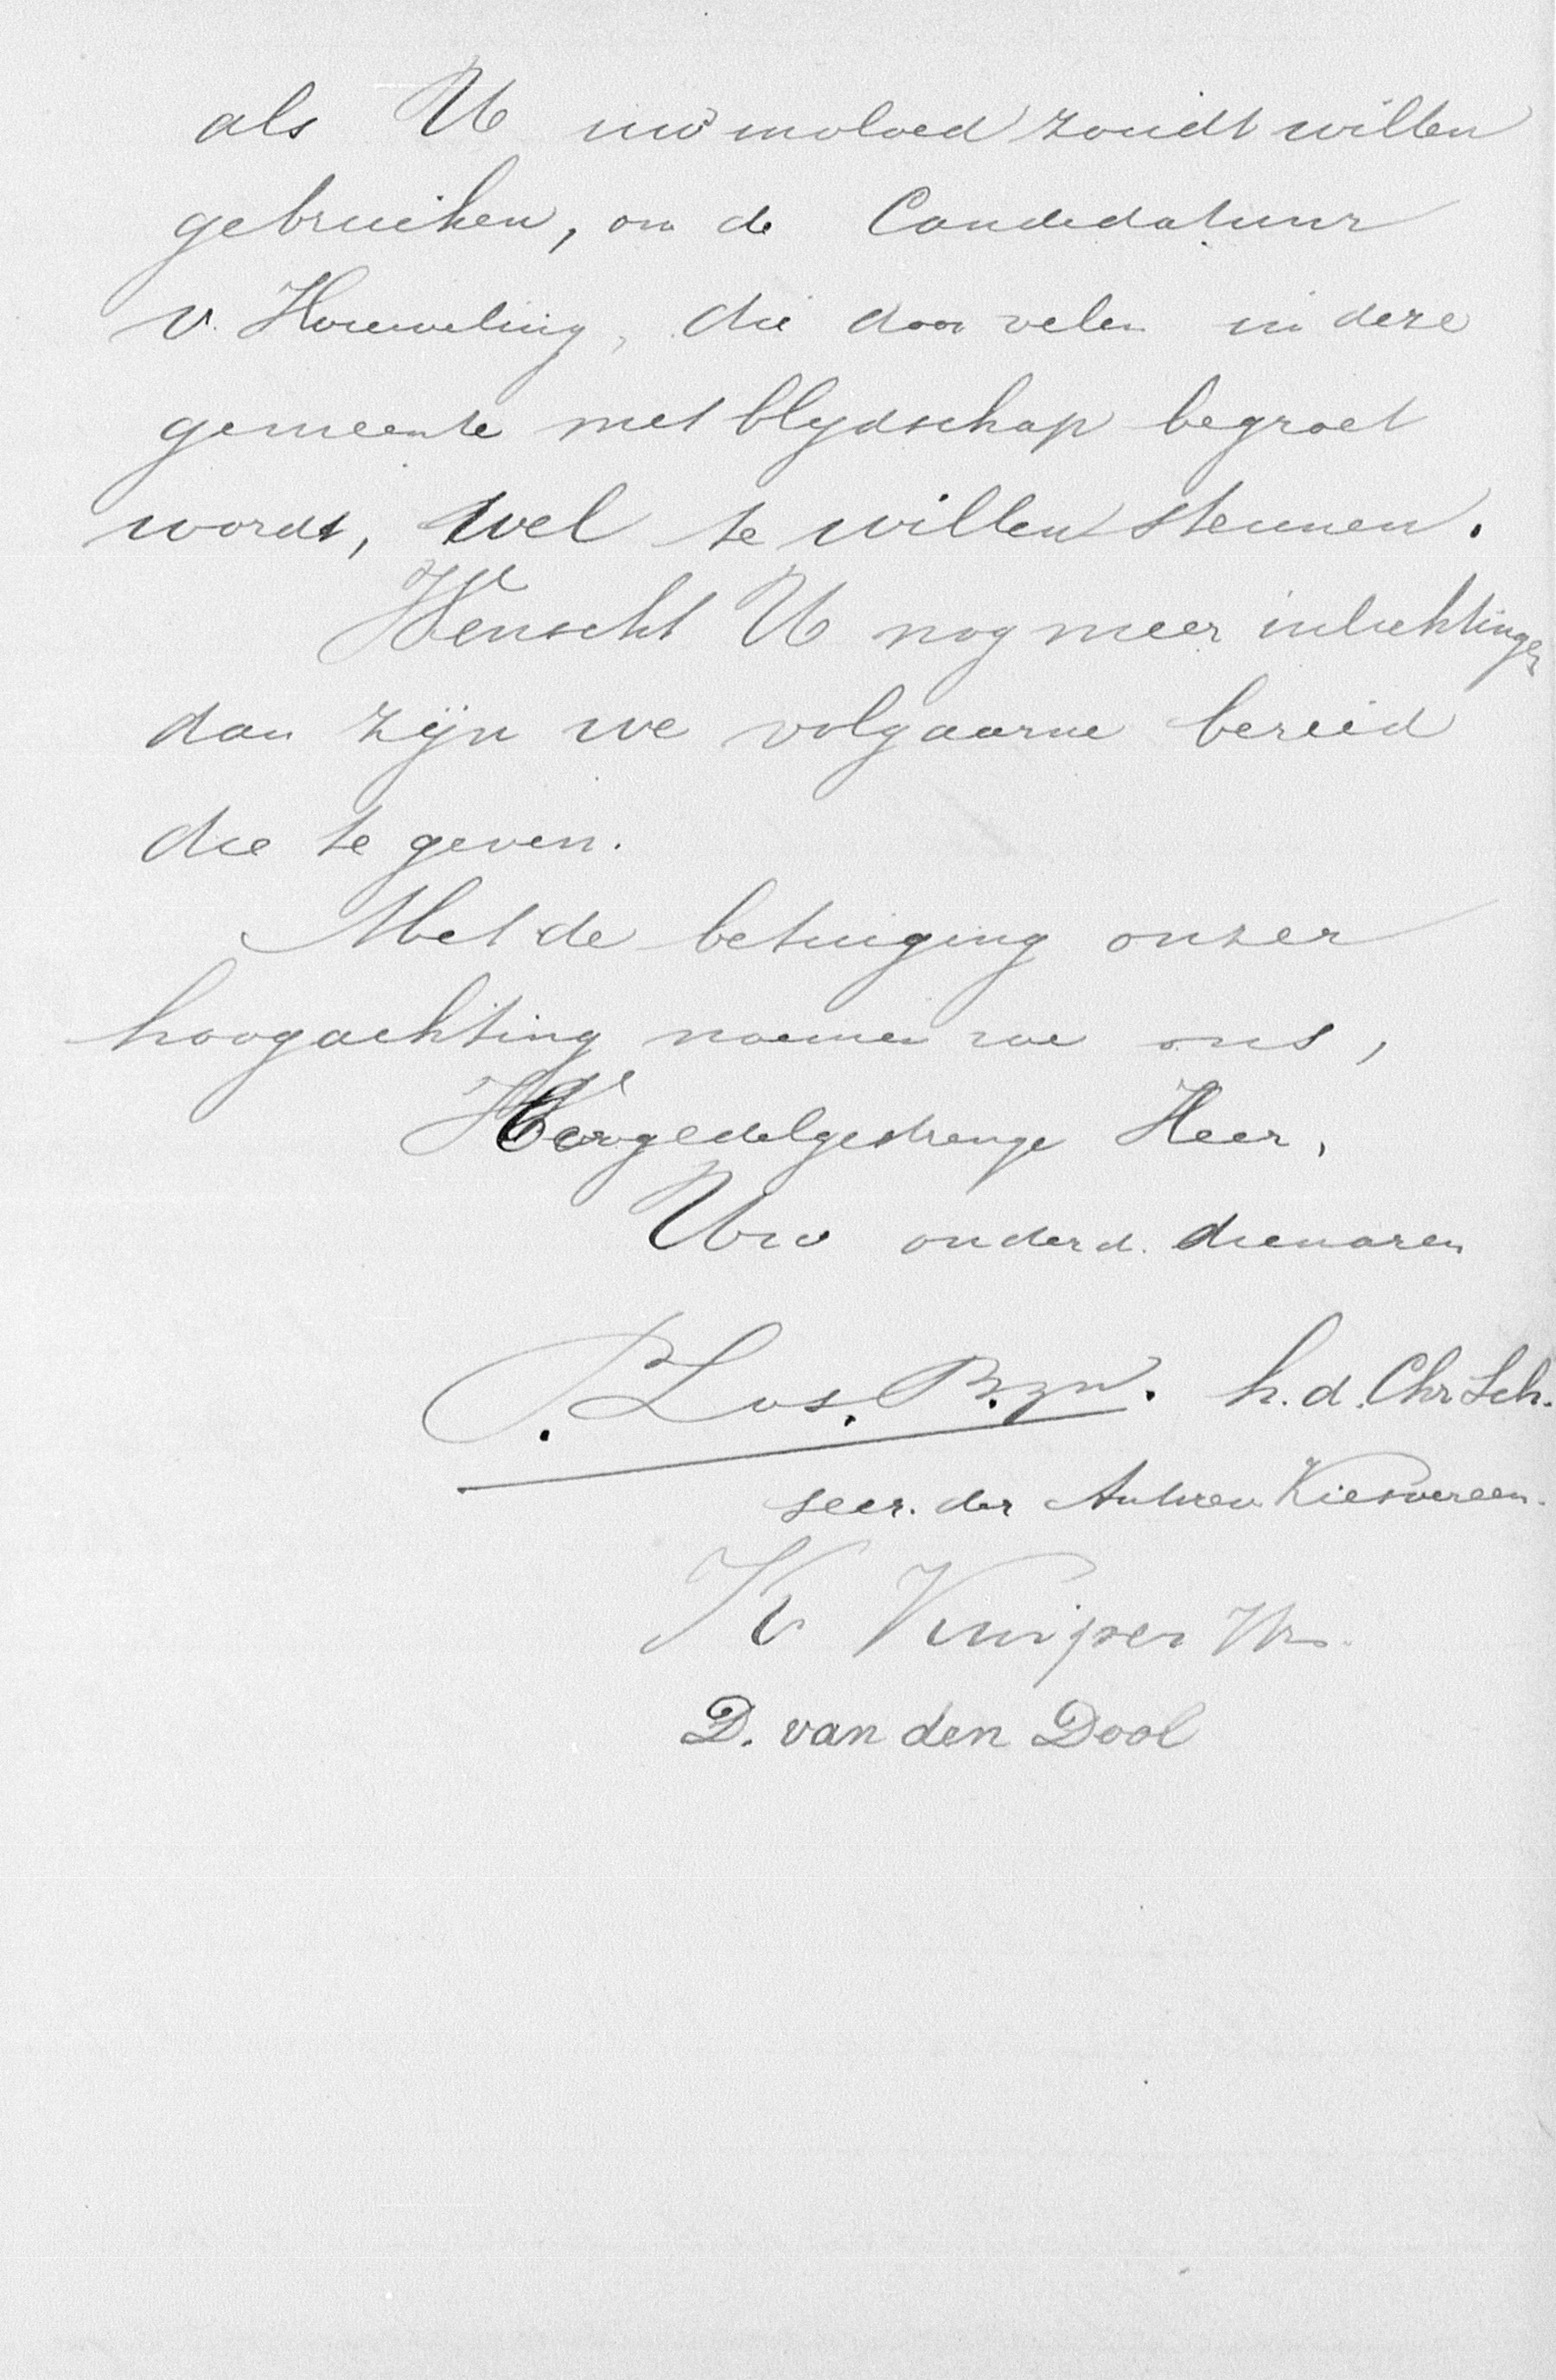 als U uw invloed zoudt willen
gebruiken, om de Candidatuur
v. Houweling, die door velen in deze
gemeente met blydschap begroet
wordt, wel te willen steunen.
Wenscht U nog meer inlichtingen
dan zijn we volgaarne bereid
die te geven.
Met de betuiging onzer
hoogachting noemen we ons,
Hoogedelgestrenge Heer,
Uw onderd. dienaren
P. Los. Pzn. h.d. Chr Sch.
secr. der Antirev Kiesvereen.
K Kuiper
D. van den Dool